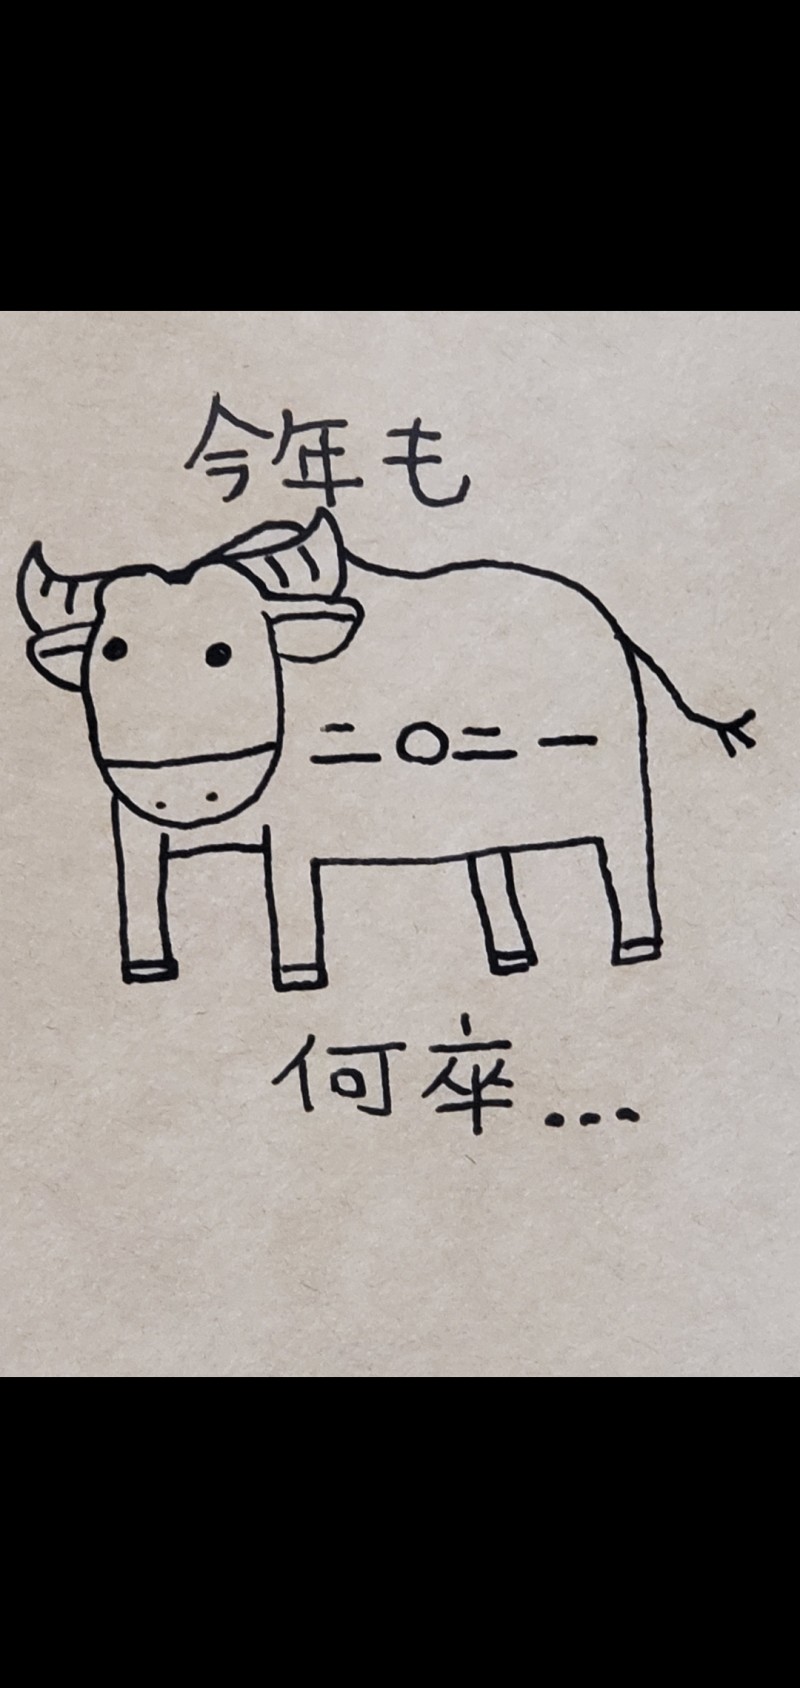 今年も
二〇二一
何卒...